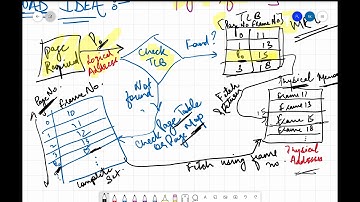 IDEA :
TLB
[Page No Frame No]
MK
Page Required
P6
Logical Address
Check TLB
Found?
0 11
1 13
6 15
3 18
Not found
Page No.
Frame No.
0 10
1 11
2 12
3 13
Check Page Table
or Page Map
Physical Memory
Frame 11
Frame 13
Frame 15
Frame 18
15
Complete Set
Fetch using frame no.
Physical Address